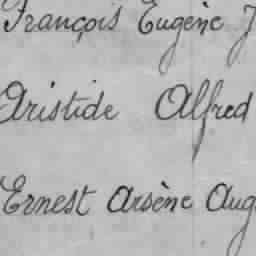 François Eugène J
Aristide Alfred
Ernest Arsène Aug